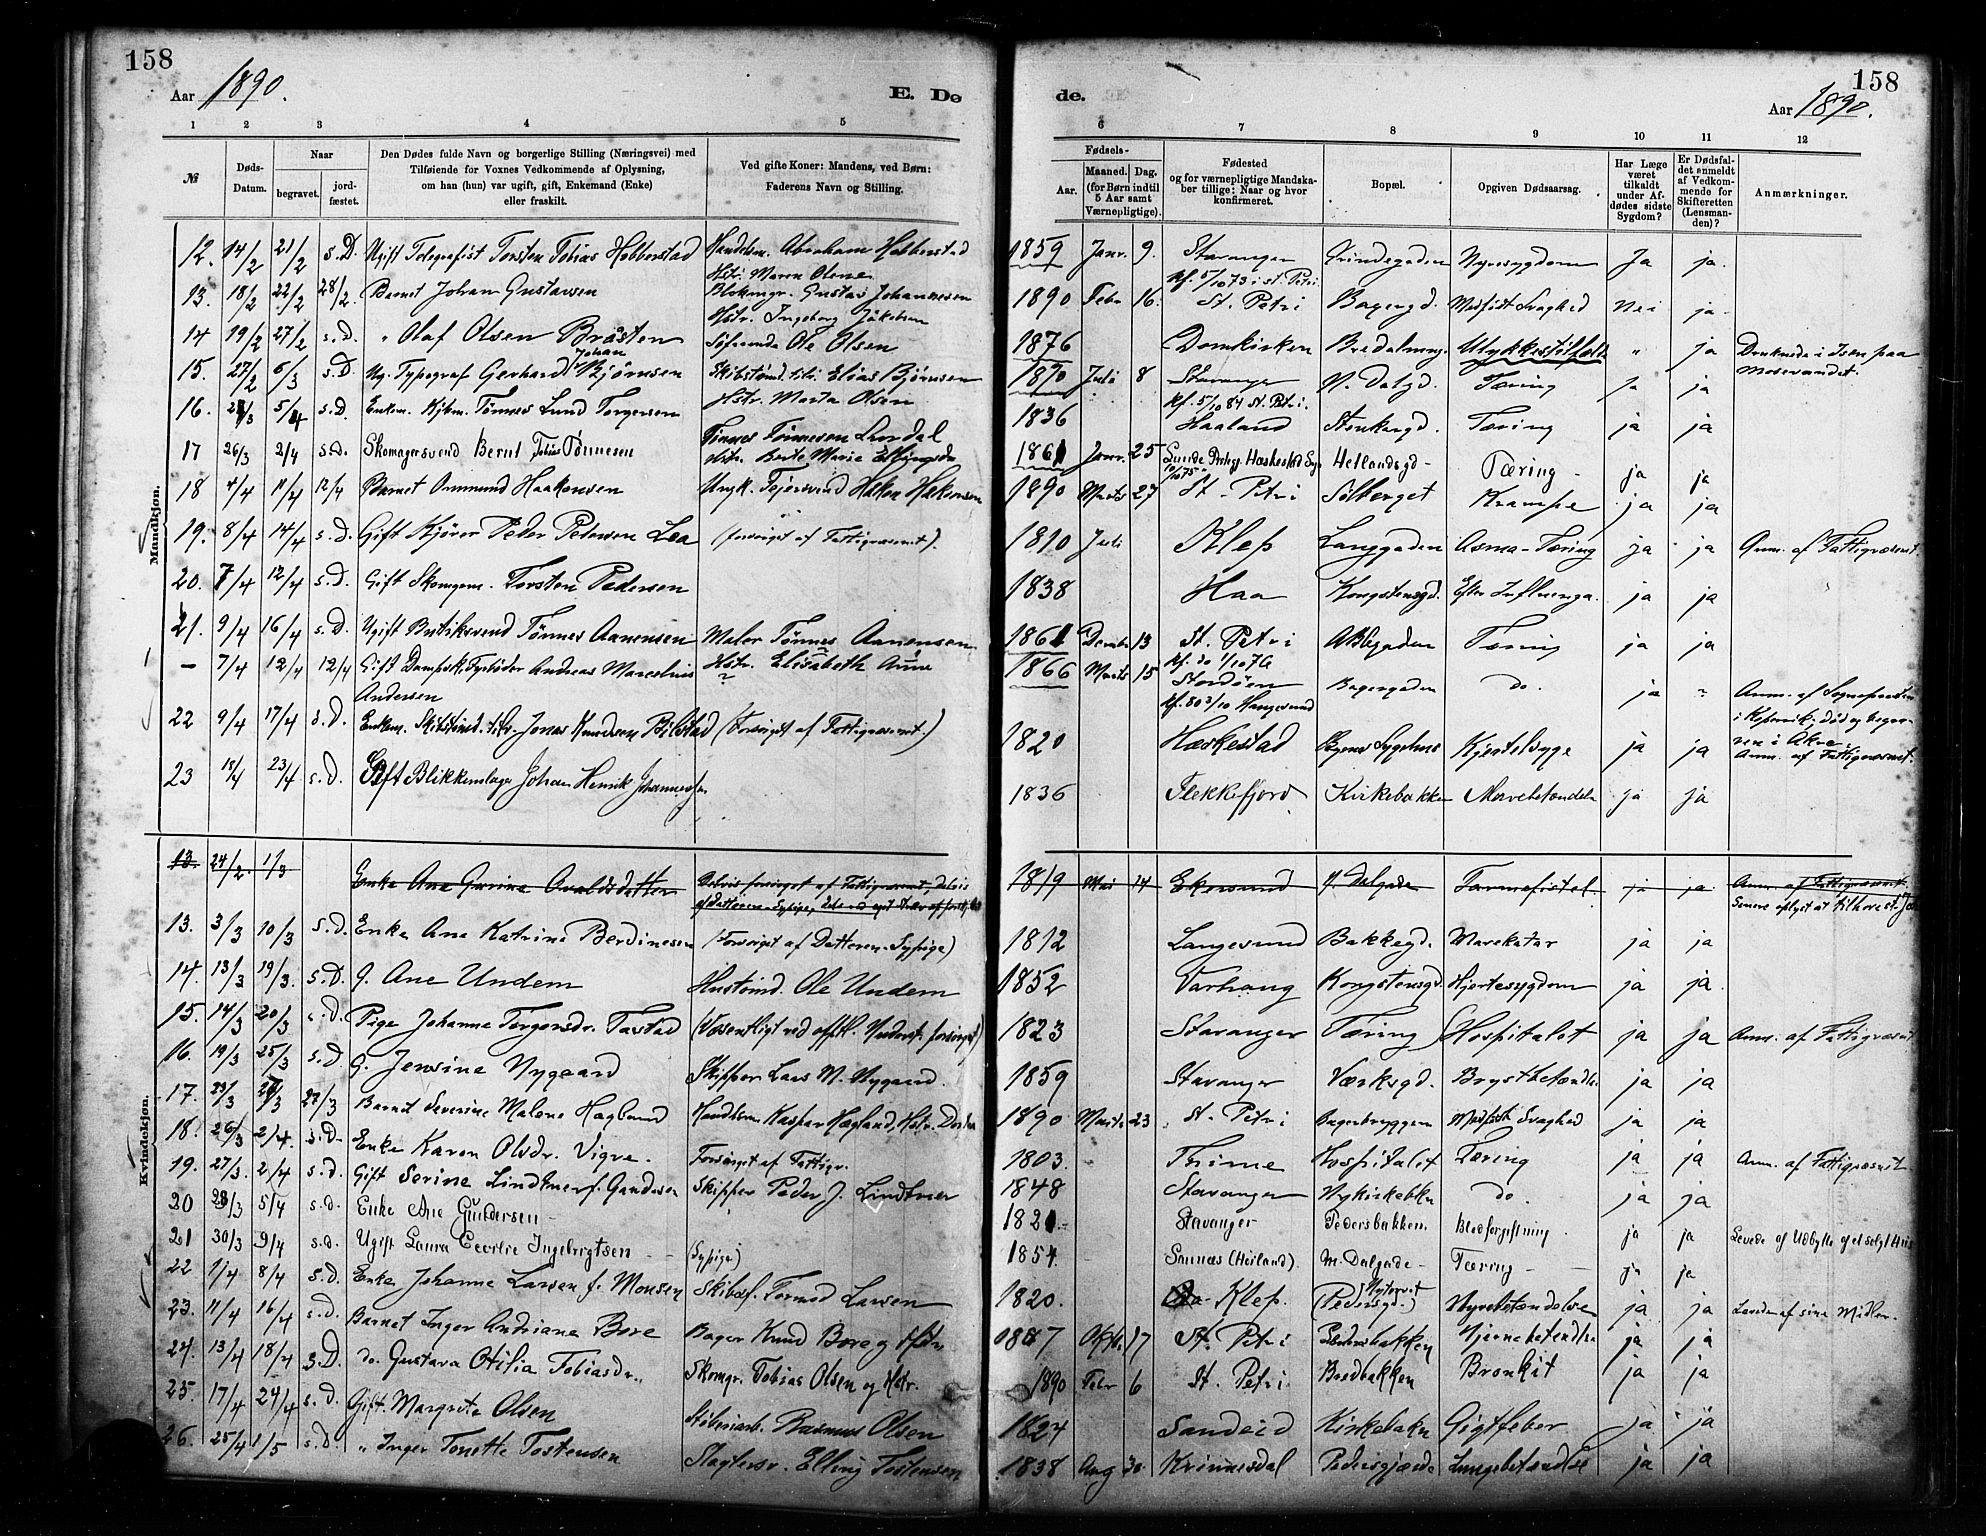 158
Aar 1890.
E. Dø
1 2 3 4 5
№
Døds-Datum.
Naar
begravet.
jord-fæstet.
Den Dødes fulde Navn og borgerlige Stilling (Næringsvei) med
Tilføiende for Voxnes Vedkommende af Oplysning,
om han (hun) var ugift, gift, Enkemand (Enke)
eller fraskilt.
Ved gifte Koner: Mandens, ved Børn:
Faderens Navn og Stilling.
Mandkjøn.
12. 14/2 21/2 s.D. Ugift Telegrafist Torsten Tobias Hobberstad Handelsm. Abraham Hobberstad
Hstr. Maren Olene
13. 18/2 22/2 28/2. Barnet Johan Gustavsen Blokmgr. Gustav Johannesen
Hstr. Ingeborg Jakobsen
14 19/2 27/2 s.D. " Olaf Olsen Bråsten Søfarende Ole Olsen
15. 27/2 6/3 s.D. Ug. Typograf Gerhard Johan Bjørnsen Skibstømd. Elias Bjørnsen
Hstr. Marta Olsen
16. /3 5/4 s.D. Enkem. Kjbm. Tønnes Lund Torgersen
17 26/3 2/4 s.D. Skomagersvend Bernt Tobias Tønnesen Tønnes Tønnesen
Hstr. Berte Marie
18 4/4 11/4 12/4 Barnet Ommund Haakonsen Ungk. Fejersvend Håkon Håkonsen
19. 8/4 14/4 s.D. Gift Kjører Peder Pedersen Lea (forsørget af Fattigvæsnet).
20. 7/4 12/4 s.D. Gift Skomgem. Torsten Pedersen
21. 9/4 16/4 s.D. Ugift Butiksvend Tønnes Aanensen Maler Tønnes Aanensen
Hstr. Elisabeth Anne
— 7/4 12/4 12/4 Gift Dampsk. Fyrbøder Andreas Marselius ?
Andersen
22 9/4 17/4 s.D. Enkem. Skibstømd. Jonas Knudsen Bilstad (Forsørget af Fattigvæsnet.)
23 15/4 23/4 s.D. Gift Blikkenslager Johan Henrik Johannessen
Kvindekjøn.
13. 24/2. 1/3 Enke Ane Gurine Delvis forsørget af Fattigvæsnet, delvis
af Datteren Sypige,
13. 3/3 10/3 s.D. Enke Ane Katrine Berdinesen (Forsørget af Datteren Sypige)
14. 13/3 19/3. s.D. G. Ane Undem Hustømd. Ole Undem
15. 14/3 20/3 s.D. Pige Johanne Torgersdr. Tastad (Væsentligt ved offtl. Underst. forsørget)
16. 19/3 25/3 s.D. G. Jensine Nygaard Skipper Lars M. Nygaard.
17. 23/3 /3 27/3 Barnet Severine Malene Høglund Kaspar Høgland, Hstr.
18. 26/3 2/4. s.D. Enke Karen Olsdr. Vigre. Forsørget af Fattigv.
19. 27/3. 2/4 s.D. Gift Serine Lindtner f. Gundersen Skipper Peder J. Lindtner
20 28/3 5/4 s.d. Enke Ane Gundersen
21 30/3 9/4 s.d. Ugift Laura Cecilie Ingebrigtsen (Sypige)
22 1/4 8/4 s.d. Enke Johanne Larsen f. Monsen Skibsf. Tormod Larsen
23. 11/4 16/4 s.D. Barnet Inger Andriane Bore Bager Knud Bore og Hstr.
24. 13/4 18/4 s.D. do. Gustava Otilia Tobiasdr. Skomgr. Tobias Olsen og Hstr.
25. 17/4 24/4 s.d. Gift. Margrete Olsen Støberiarb. Rasmus Olsen
26. 25/4 1/5 s.d. " Inger Tonette Tostensen Slagtersv. Elling Tostensen
158
Aar 1890.
de.
6 7 8 9 10 11 12
Fødsels-
Aar.
Maaned. Dag.
(for Børn indtil
5 Aar samt
Værnepligtige).
Fødested
og for værnepligtige Mandska-
ber tillige: Naar og hvor
konfirmeret.
Bopæl.
Opgiven Dødsaarsag.
Har Læge
været
tilkaldt
under Af-
dødes sidste
Sygdom?
Er Dødsfal-
det anmeldt
af Vedkom-
mende for
Skifteretten
(Lensman-
den)?
Anmærkninger.
1859 Janr. 9. Stavanger Grindegaden Nyresygdom Ja ja.
kf. 5/10 73 i St. Petri.
1890. Febr 16. St. Petri Bagergd. Medfødt Svaghed Nei ja.
1876 Domkirken Bredalmng. Ulykkestilfælde " ja Druknede i Isen paa
Mosevandet.
1870 Juli 8 Stavanger N. Dalgd. Tæring ja ja
kf. 5/10 84 St. Petri.
1836 Haaland Stenkargd. Tæring ja ja
1861 Janr. 25 Sunde Hetlandsgd - Tæring - ja ja
1890 Marts 27 St. Petri Solberget Krampe ja ja
1810 Juli Klep Langgaden Asma-Tæring ja ja Anm. af Fattigvæsnet.
1838 Haa Kongstensgd. Efter Influenza. ja ja
1861 Decmbr 13 St. Petri Tæring ja ja
kf. do 1/10 76
1866 Marts 15 Stordøen Bagergaden do. ja " Anm. af Sognepresten
kf. 80 3/10 Haugesund i Kopervik, død og begra-
ven i Akre.
1820 Heskestad Sygehus Hjertesyge ja ja Anm. af Fattigvæsnet.
1836 Flekkefjord Kirkebakken Mavebetændelse ja ja
1819 Mai 14 Ekersund N. Dalgade Tarmefistel. ja ja Anm. af Fattigvæsnet
Senere oplyst at tilhøre St. Joh.
1812 Langesund Bakkegd. Mavekatar ja ja
1852 Varhaug Kongstensgd. Hjertesygdom ja ja.
1823 Stavanger Tæring Hospitalet ja ja Anm. af Fattigvæsnet
1859 Stavanger Værksgd. Brystbetændelse ja ja
1890 Marts 23 St. Petri Bagerbryggen Medfødt Svaghed ja ja
1803. Thime Hospitalet Tæring ja ja Anm. af Fattigvæsnet
1848 Stavanger Nykirkebkn do. ja ja
1821. Stavanger Pedersbakken. Blodforgiftning. ja ja Levede af Udbytte af et solgt Hus
1854. Sannæs (Høiland). M. Dalgade - Tæring - ja ja
1820. Klep. Nytorvet Nyrebetændelse ja ja Levede af sine Midler.
(Pedersgd.)
1887 Oktbr 17 St. Petri Pedersbakken Hjernebetændelse ja ja
1890 Febr 6 St. Petri Bredbakken Bronkit ja ja
1824 Sandeid Kirkebakn Gigtfeber ja ja
1838 Aug 30. Kvinnesdal Pedersgjærde Lungebetændelse ja ja